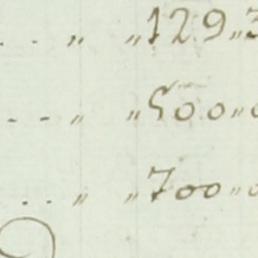 ... „ „ 129„3
-- „ „ 500„0
.. „ „ 700„0